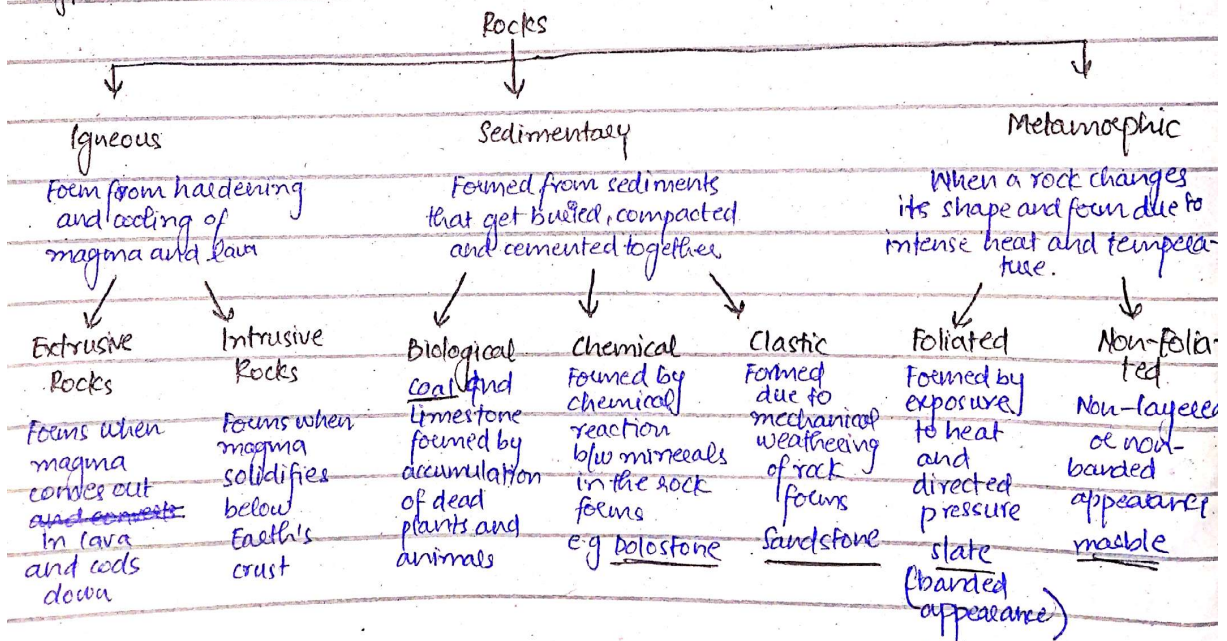 Rocks
Igneous
Form from hardening
and cooling of
magma and lava
Extrusive
Rocks
Forms when
magma
comes out
and converts
in lava
and cools
down
Intrusive
Rocks
Forms when
magma
solidifies
below
Earth's
crust
Sedimentary
Formed from sediments
that get buried, compacted
and cemented together
Biological
coal and
limestone
formed by
accumulation
of dead
plants and
animals
Chemical
Formed by
chemical
reaction
b/w minerals
in the rock
forms
e.g Dolostone
Clastic
Formed
due to
mechanical
weathering
of rock
forms
Sandstone
Metamorphic
When a rock changes
its shape and form due to
intense heat and tempera-
ture.
Foliated
Formed by
exposure
to heat
and
directed
pressure
slate
(banded
appearance)
Non-folia-
ted
Non-layered
or non-
banded
appearance
marble